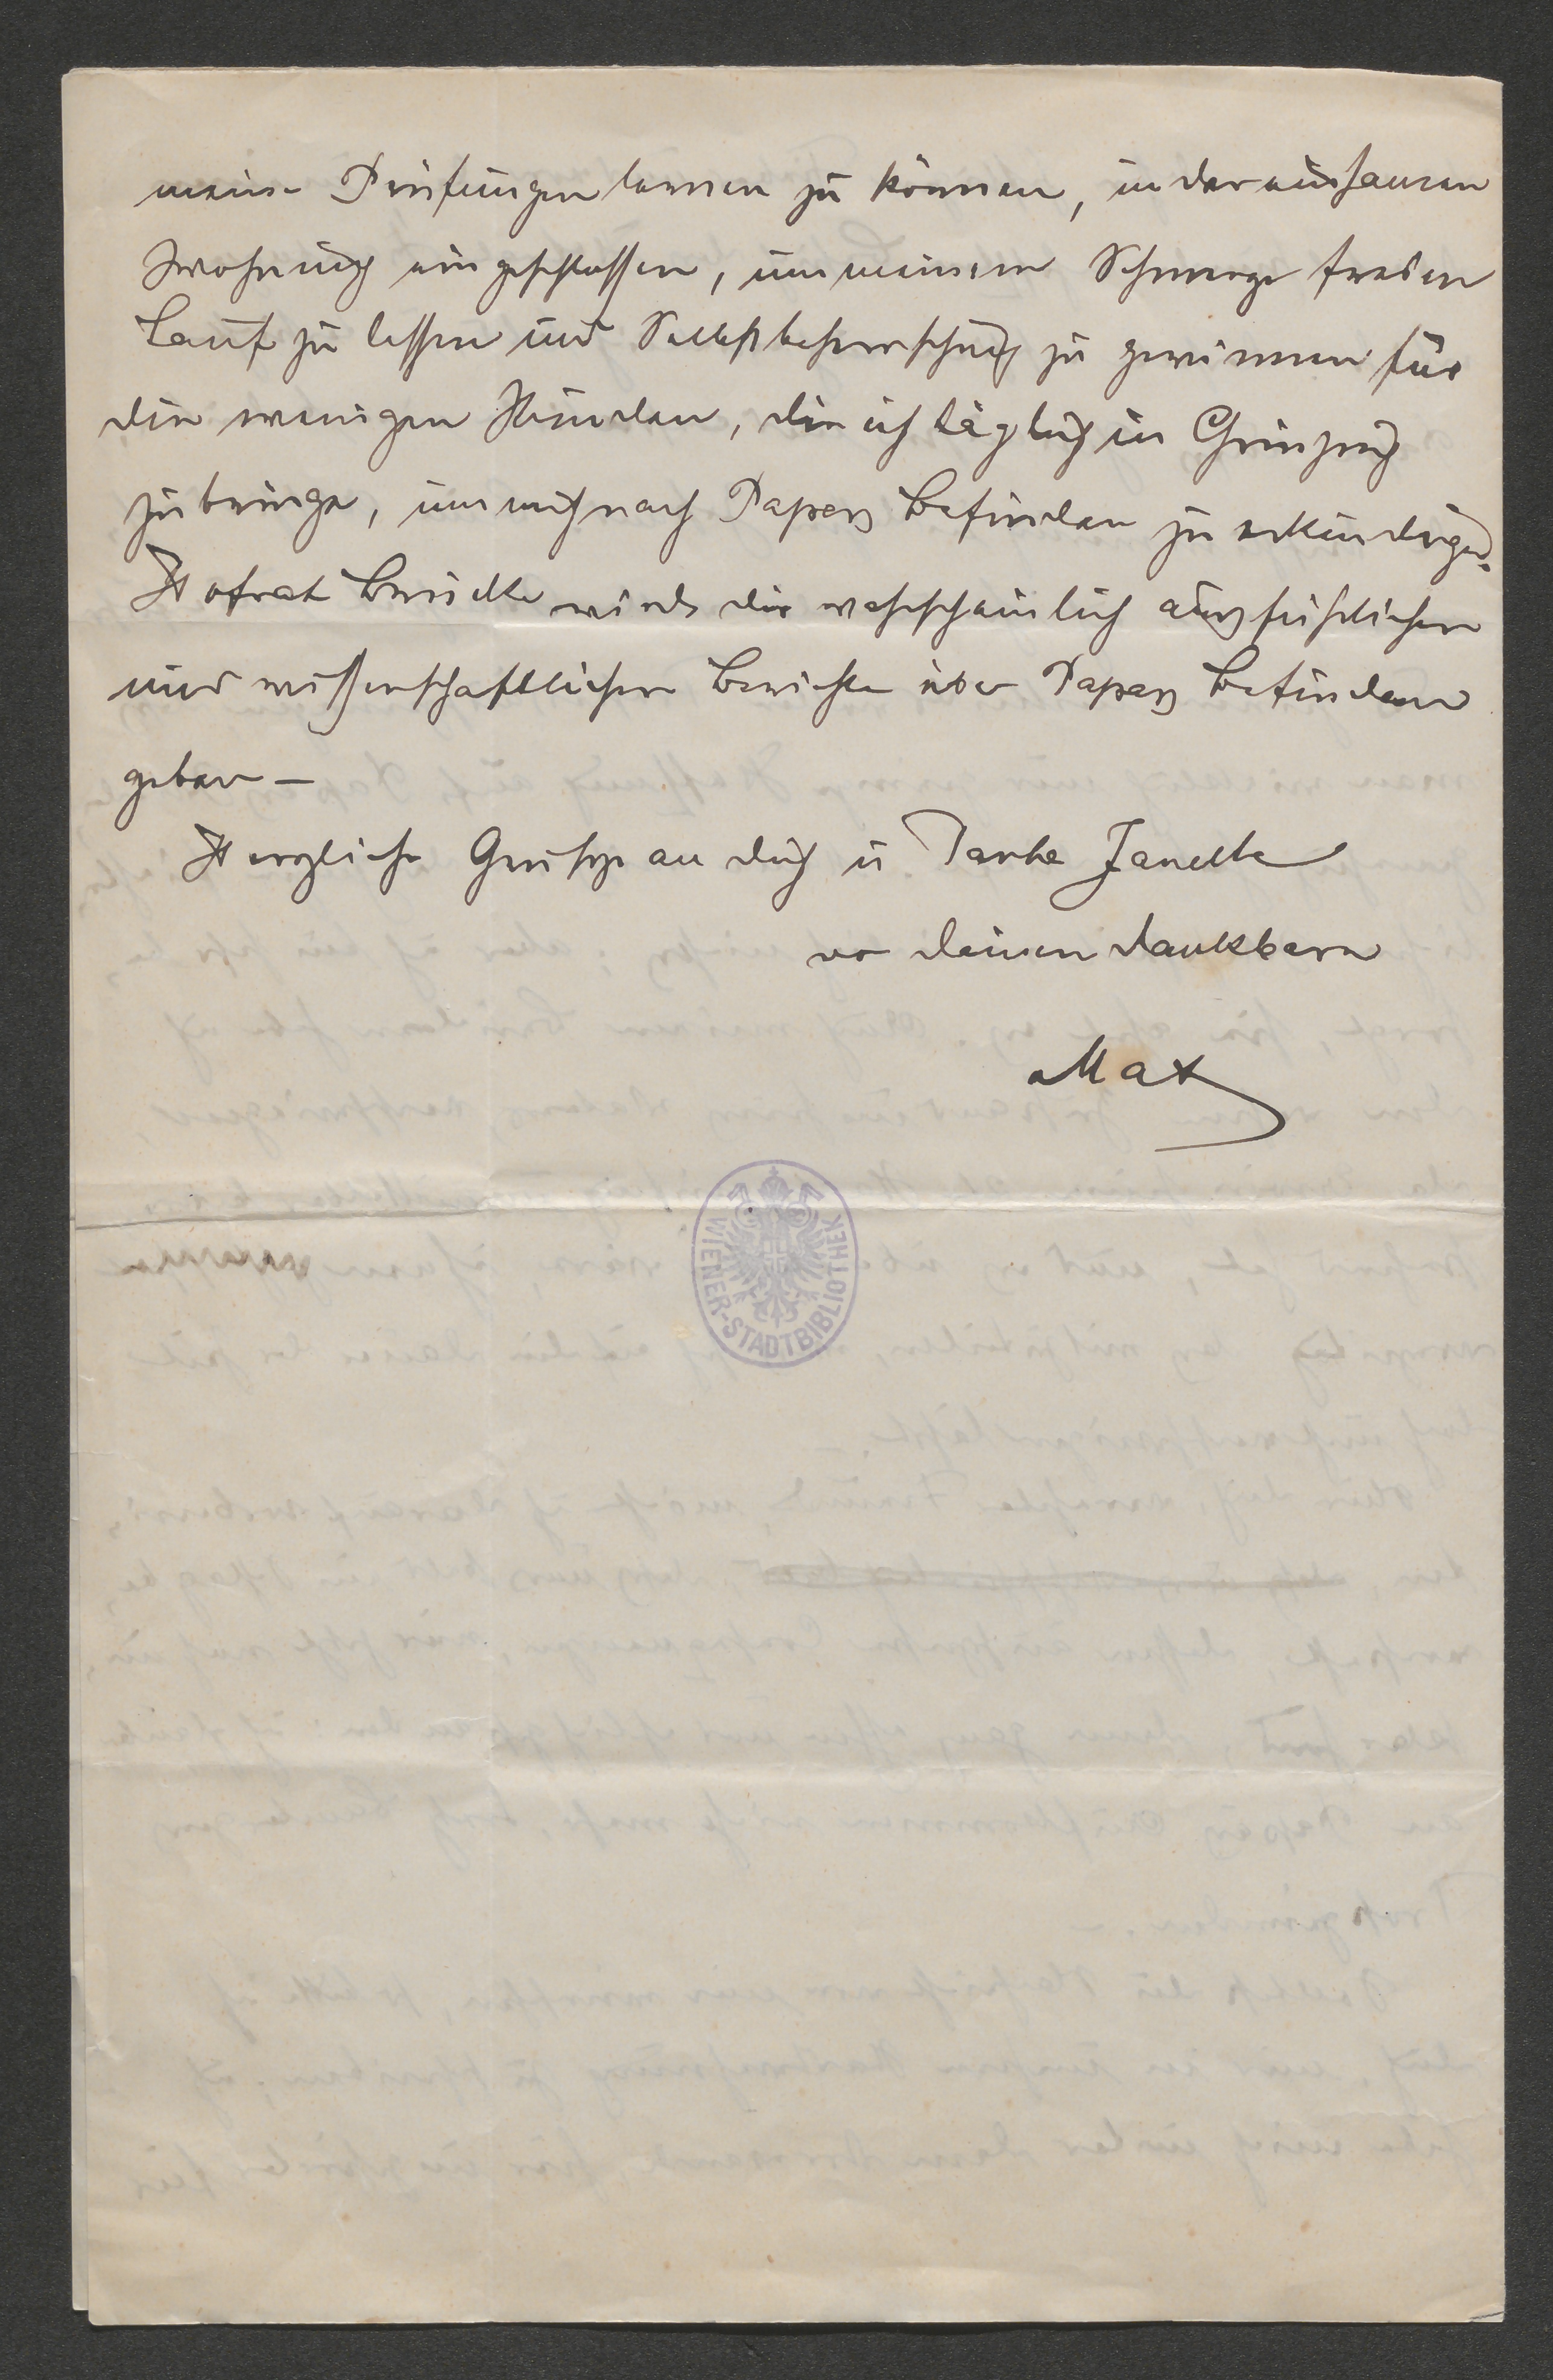 meine Prüfungen lernen zu können, in der einsamen
Wohnung eingeschlossen, um meinem Schmerze freien
Lauf zu lassen und Selbstbeherrschung zu gewinnen für
die wenigen Stunden, die ich täglich in Grinzing
zubringe, um mich nach Papas Befinden zu erkundigen.
Hofrat Brücke wird dir wahrscheinlich ausführlichere
und wissenschaftlichere Berichte über Papas Befinden
geben —
Herzliche Grüße an dich u Tante Janette
von deinem dankbaren
Max
WIENER-STADTBIBLIOTHEK